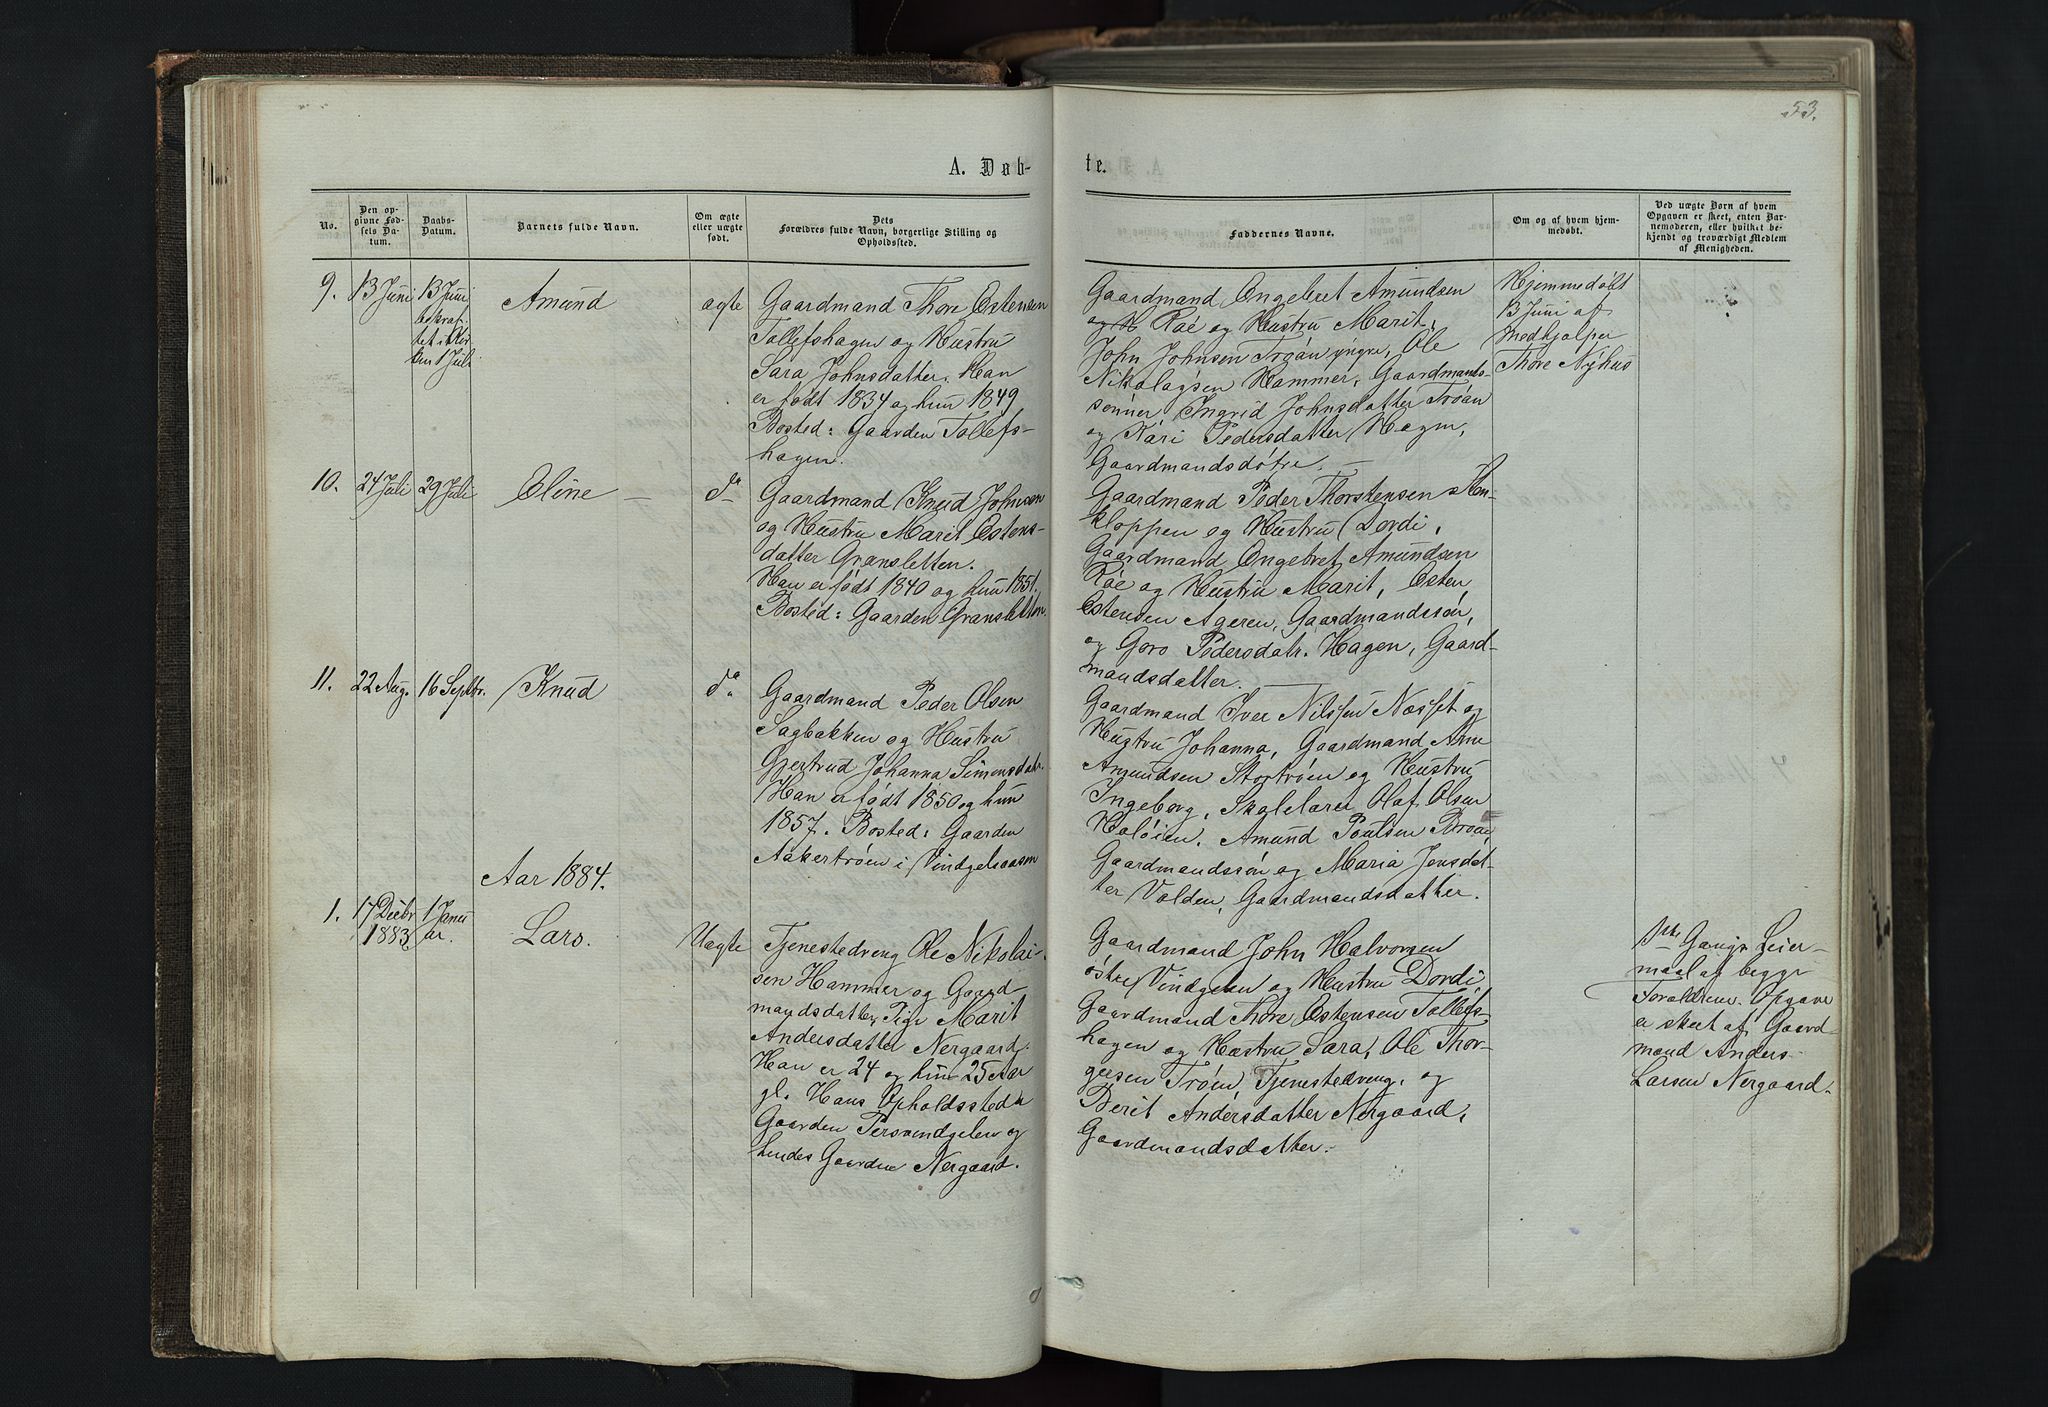 53.
A. Døb-
te.
No.
Den op-
givne Fød-
sels Da-
tum.
Daabs-
Datum.
Barnets fulde Navn.
Om ægte
eller uægte
født.
Dets
Forældres fulde Navn, borgerlige Stilling og
Opholdssted.
Faddernes Navne.
Om og af hvem hjem-
medøbt.
Ved uægte Børn af hvem
Opgaven er skeet, enten Bar-
nemoderen, eller hvilket be-
kjendt og troværdigt Medlem
af Menigheden.
9.
13 Juni
13 Juni
bekræf-
tet i Kir
ken 1 Juli
Amund
ægte
Gaardmand Thore Estensen
Tollefshagen og Hustru
Sara Johnsdatter. Han
er født 1834 og hun 1849
Bosted: Gaarden Tollefs-
hagen.
Gaardmand Engebret Amundsen
og Røe og Hustru Marit,
John Johnsen Trøan yngre, Ole
Nikolaysen Hammer, Gaardmands-
sønner, Ingrid Johnsdatter Trøan
og Kari Pedersdatter Hagen,
Gaardmandsdøtre. —
Hjemmedøbt
13 Juni af
Medhjælper
Thore Nyhus
10.
24 Juli
29 Juli
Eline —
do
Gaardmand Knud Johnsen
og Hustru Marit Estens-
datter Gransletten.
Han er født 1840 og hun 1851.
Bosted: Gaarden Gransletten.
Gaardmand Peder Thorstensen Sten-
kloppen og Hustru Dordi,
Gaardmand Engebret Amundsen
Røe og Hustru Marit, Esten
Estensen Ageren, Gaardmandssøn,
og Goro Pedersdatr. Hagen, Gaard-
mandsdatter. —
11.
22 Aug.
16 Septbr.
Knud
do
Gaardmand Peder Olsen
Sagbakken og Hustru
Gjertrud Johanna Simensdatr.
Han er født 1850 og hun
1857. Bosted: Gaarden
Aakertrøen i Vindgelsaasen
Gaardmand Iver Nilssen Næsset og
Hustru Johanna, Gaardmand Arne
Amundsen Stortrøen og Hustru
Ingeborg, Skolelærer Olaf Olsen
Holøien, Amund Poulsen Brøen,
Gaardmandssøn og Maria Jensdat-
ter Volden, Gaardmandsdatter.
Aar 1884.
1.
17 Decbr
1883
1 Janu
ar.
Lars.
Uægte
Tjenestedreng Ole Nikolai-
sen Hammer og Gaard
mandsdatter, Pige Marit
Andersdatter Nergaard.
Han er 24 og hun 25 Aar
gl. Hans Opholdssted er
Gaarden Persvindgelen og
hendes Gaarden Nergaard.
Gaardmand John Halvorsen
østre Vindgelen og Hustru Dordi,
Gaardmand Thore Estensen Tollefs-
hagen og Hustru Sara, Ole Thor-
gersen Trøen, Tjenestedreng, og
Berit Andersdatter Nergaard,
Gaardmandsdatter.
1ste Gangs Leier-
maal af begge
Forældrene. Opgave
er skeet af Gaard-
mand Anders
Larsen Nergaard.